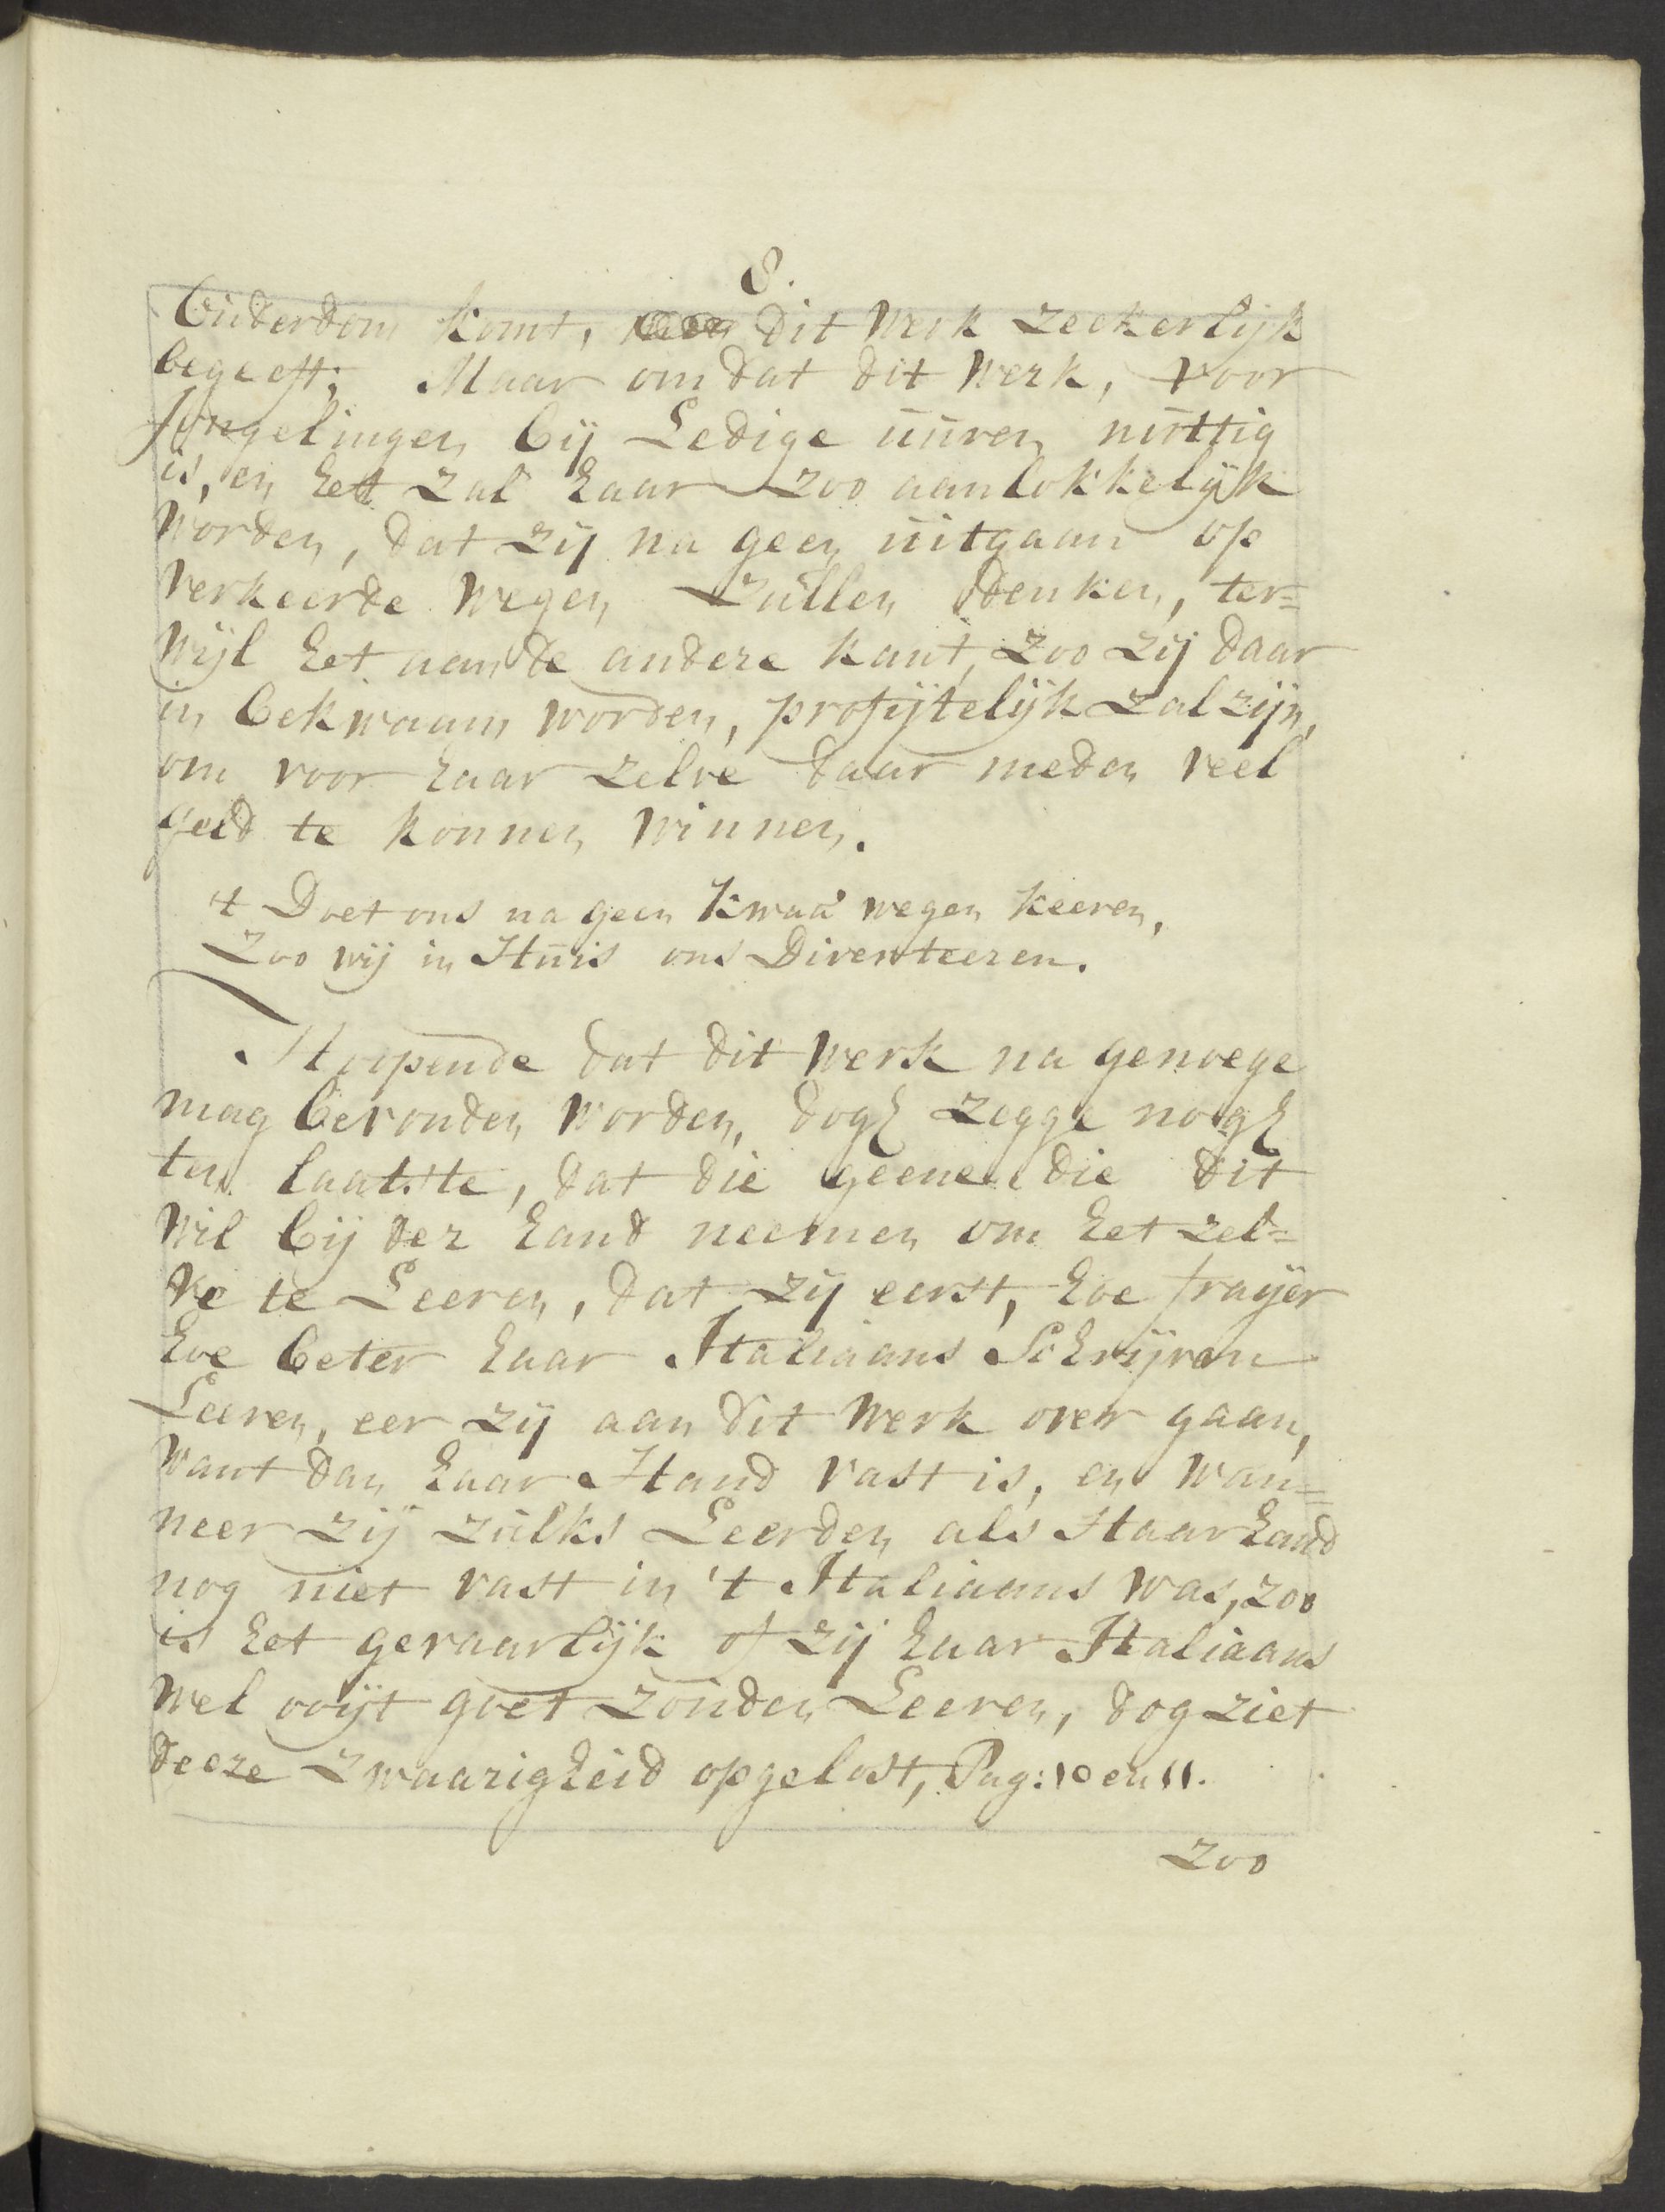 8.
Ouderdom komt, dit werk zeekerlijk
begeeft; Maar om dat dit werk, voor
Jongelingen bij Ledige uuren nuttig
is, en het zal haar zoo aanlokkelijk
worden, dat zij na geen uitgaan op
verkeerde wegen zullen denken, ter=
wijl het aan de andere kant, zoo zij daar
in bekwaam worden, profijtelijk zal zijn,
om voor haar zelve daar meden veel
geld te konnen winnen.
't Doet ons na geen kwaa' wegen keeren,
Zoo wij in Huis ons Diverteeren.
Hoopende dat dit werk na genoege
mag bevonden worden, dogh zegge nogh
ten laatste, dat die geene die dit
wil bij der hand neemen om het zel=
ve te Leeren, dat zij eerst, hoe frayer
hoe beter haar Italiaans Schrijven
Leeren, eer zij aan dit werk over gaan,
want dan haar Hand vast is, en wan=
neer zij zulks Leerden als Haar hand
nog niet vast in 't Italiaans was, zoo
is het gevaarlijk of zij haar Italiaans
wel ooijt goet zouden Leeren, dog ziet
deeze zwaarigheid opgelost, Pag: 10 en 11.
Zoo